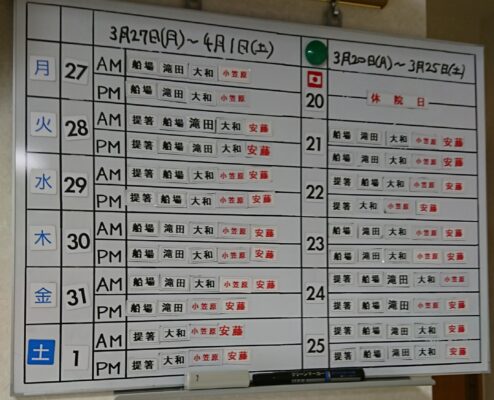 3月27日(月)～4月1日(土)
3月20日(月)～3月25日(土)
月 27 AM 船場 滝田 大和 小笠原
PM 船場 滝田 大和 小笠原
20 休院日
火 28 AM 提箸 船場 滝田 大和 安藤
PM 提箸 船場 滝田 大和 安藤
21 船場 滝田 大和 小笠原 安藤
船場 滝田 大和 小笠原 安藤
水 29 AM 提箸 船場 大和 小笠原 安藤
PM 提箸 船場 大和 小笠原 安藤
22 提箸 船場 大和 小笠原 安藤
提箸 大和 小笠原 安藤
木 30 AM 船場 滝田 大和 小笠原 安藤
PM 船場 滝田 大和 小笠原 安藤
23 船場 滝田 大和 小笠原 安藤
船場 滝田 大和 小笠原 安藤
金 31 AM 船場 滝田 大和 小笠原 安藤
PM 船場 滝田 小笠原 安藤
24 提箸 船場 滝田 大和 小笠原
提箸 船場 滝田 大和 小笠原
土 1 AM 提箸 大和 小笠原 安藤
PM 提箸 大和 小笠原 安藤
25 提箸 船場 滝田 大和 安藤
提箸 船場 滝田 大和 安藤